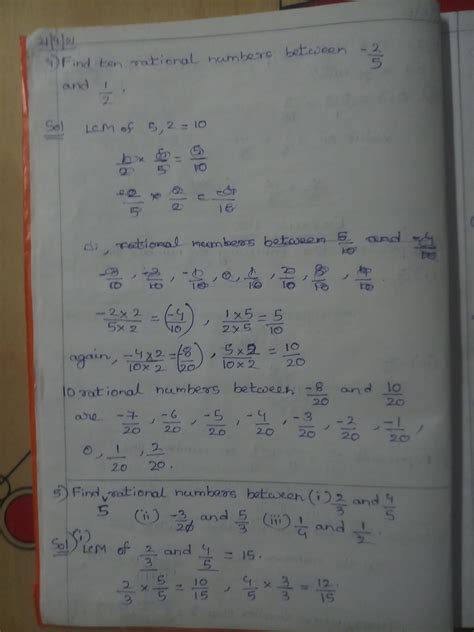 4) Find ten rational numbers between -2/5
and 1/2.
Sol LCM of 5, 2 = 10
1/2 × 5/5 = 5/10
-2/5 × 2/2 = -4/10
(i), rational numbers between 5/10 and -4/10
-3/10, -2/10, -1/10, 0, 1/10, 2/10, 3/10, 4/10.
-2×2/5×2 = (-4/10), 1×5/2×5 = 5/10
again, -4×2/10×2 = (-8/20), 5×2/10×2 = 10/20
10 rational numbers between -8/20 and 10/20
are -7/20, -6/20, -5/20, -4/20, -3/20, -2/20, -1/20,
0, 1/20, 2/20.
5) Find 5 rational numbers between (i) 2/3 and 4/5
(ii) -3/2 and 5/3 (iii) 1/4 and 1/2.
Sol (i) LCM of 2/3 and 4/5 = 15.
2/3 × 5/5 = 10/15, 4/5 × 3/3 = 12/15